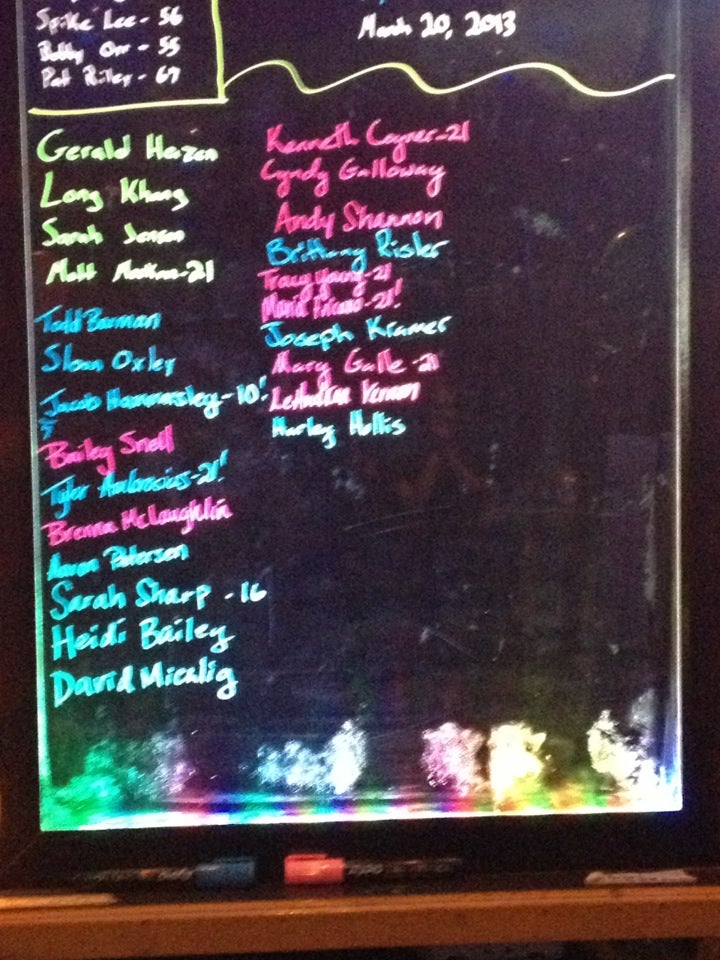 Spike Lee - 56
Bobby Orr - 55
Pat Riley - 67
March 20, 2013
Gerald Heizen
Long Khang
Sarah Jensen
Matt -21
Todd Barman
Sloan Oxley
Jacob Hammersley - 10!
Bailey Snell
Tyler Ambrosius - 21!
Brenna McLaughlin
Aaron Petersen
Sarah Sharp - 16
Heidi Bailey
David Micalig
Kenneth Cogner - 21
Cyndy Galloway
Andy Shannon
Brittany Risler
Tracy Young - 21
Maria - 21!
Joseph Kramer
Mary Galle - 21
LeAndrea Vernon
Harley Hollis